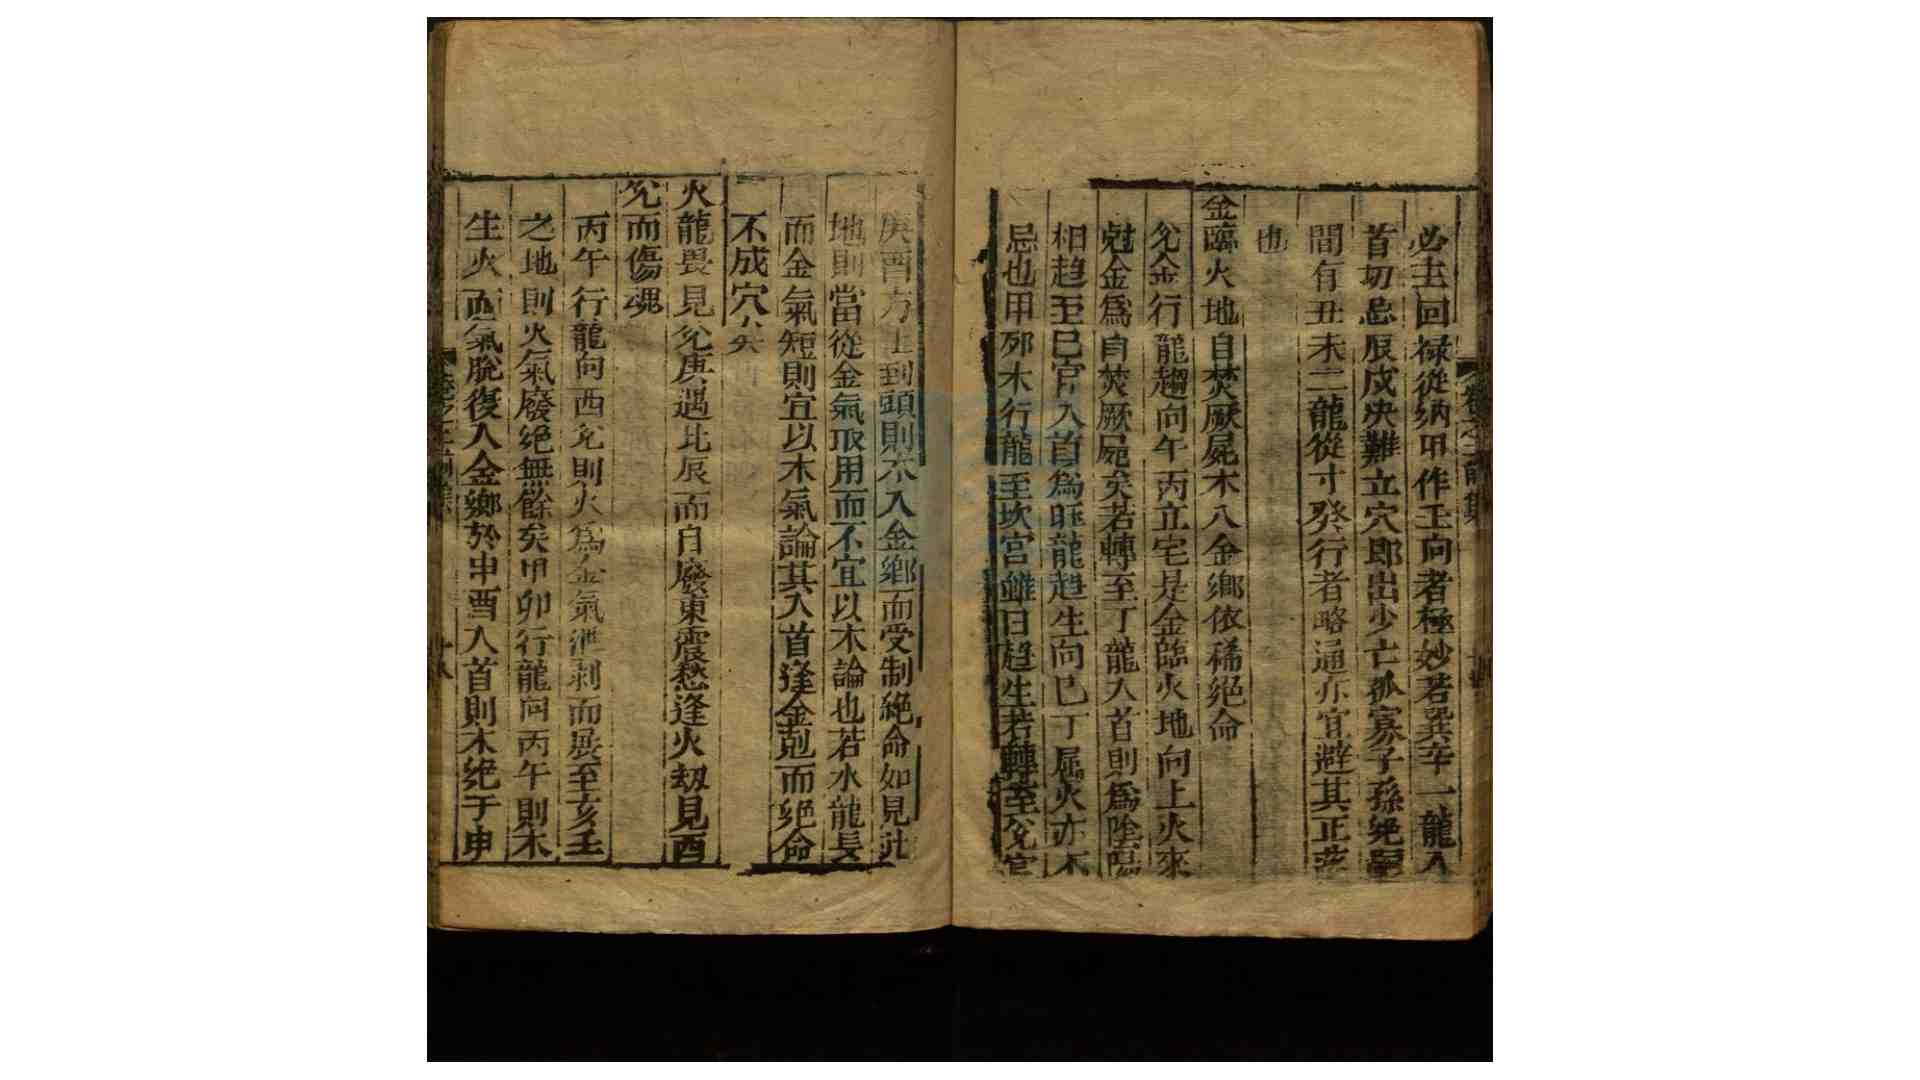 必主回禄從納甲作壬向者極妙若巽辛一龍入
首切忌辰戌決難立穴卽出少亡孤寡子孫絕
間有丑未二龍從寸癸行者略通亦宜避其正
也
金臨火地自焚厥屍木入金鄉依稀絕命
兊金行龍趨向午丙立宅是金臨火地向上火來
尅金爲自焚厥屍矣若轉至丁龍入首則爲陰陽
相趋至巳官入首爲旺龍趋生向巳丁屬火亦不
忌也甲夘木行龍至坎宮雖曰趋生若轉至兊宮
庚酉方上到頭則木入金鄉而受制絕命如見
地則當從金氣取用而不宜以木論也若水龍長
而金氣短則宜以木氣論其入首逢金剋而絕命
不成穴矣
火龍畏見兊庚遇比辰而自廢東震愁逢火刼見酉
兊而傷魂
丙午行龍向酉兊則火爲金氣泄剥而展至亥壬
之地則火氣廢絕無餘矣甲卯行龍向丙午則木
生火而氣脫復入金鄉於申酉入首則木绝于申